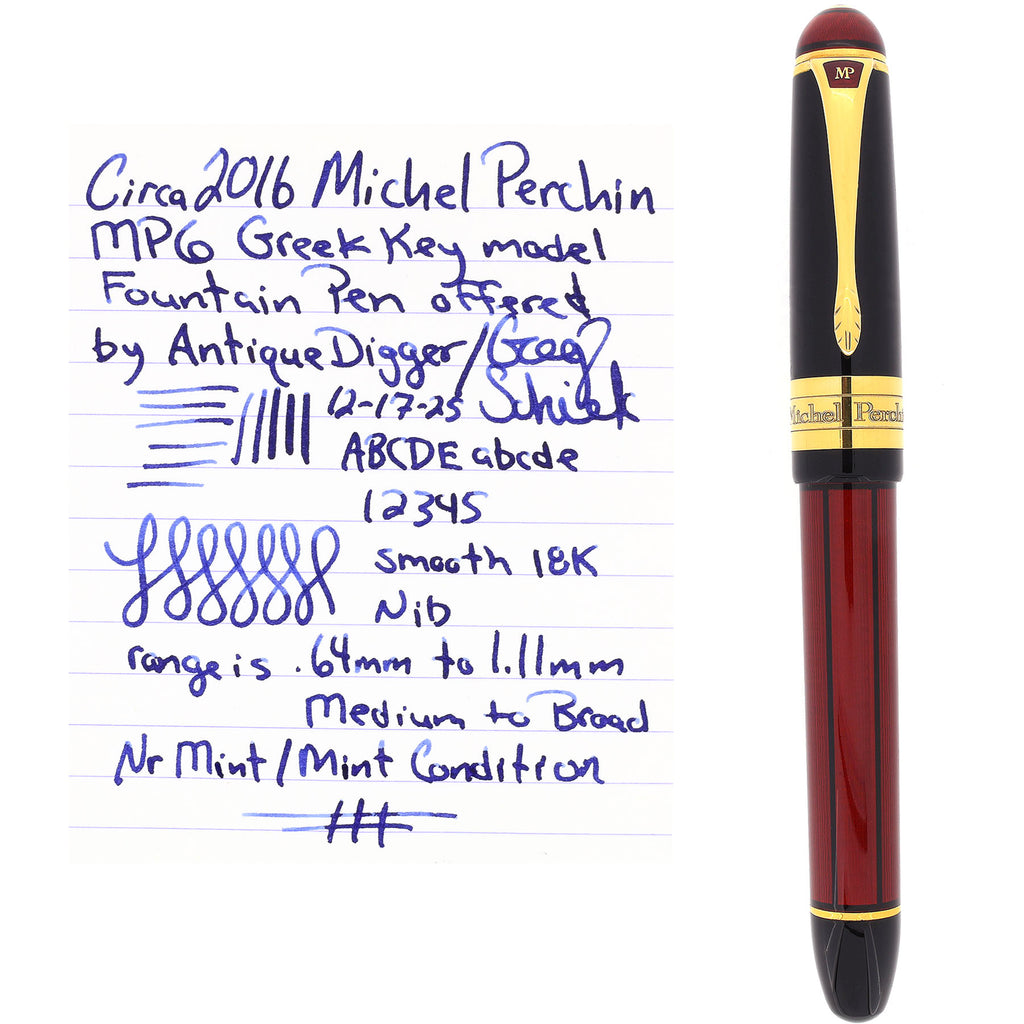 Circa 2016 Michel Perchin
MPG Greek Key model
Fountain Pen offered
by Antique Digger/Greg
Schiek
12-17-25
ABCDE abcde
12345
smooth 18K
Nib
range is .64mm to 1.11mm
Medium to Broad
Nr Mint/Mint Condition
MP
Michel Perchin